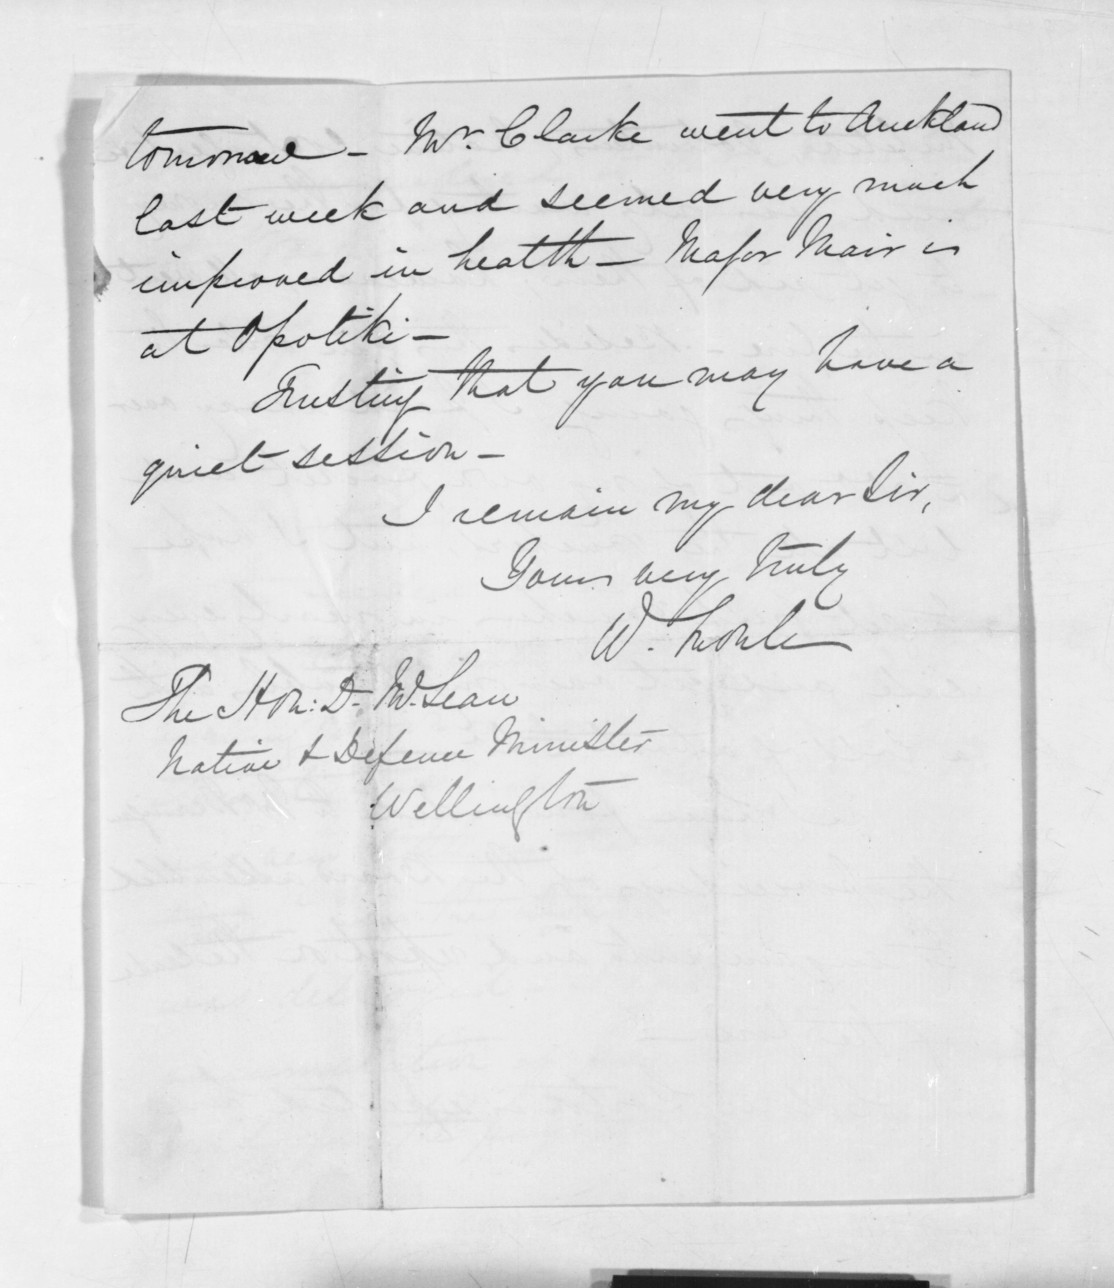 tomorrow - Mr. Clarke went to Auckland
last week and seemed very much
improved in health - Major Mair is
at Opotiki -
Trusting that you may have a
quiet session -
I remain my dear Sir,
Yours very truly
W.
The Hon: D. McLean
Native & Defence Minister
Wellington